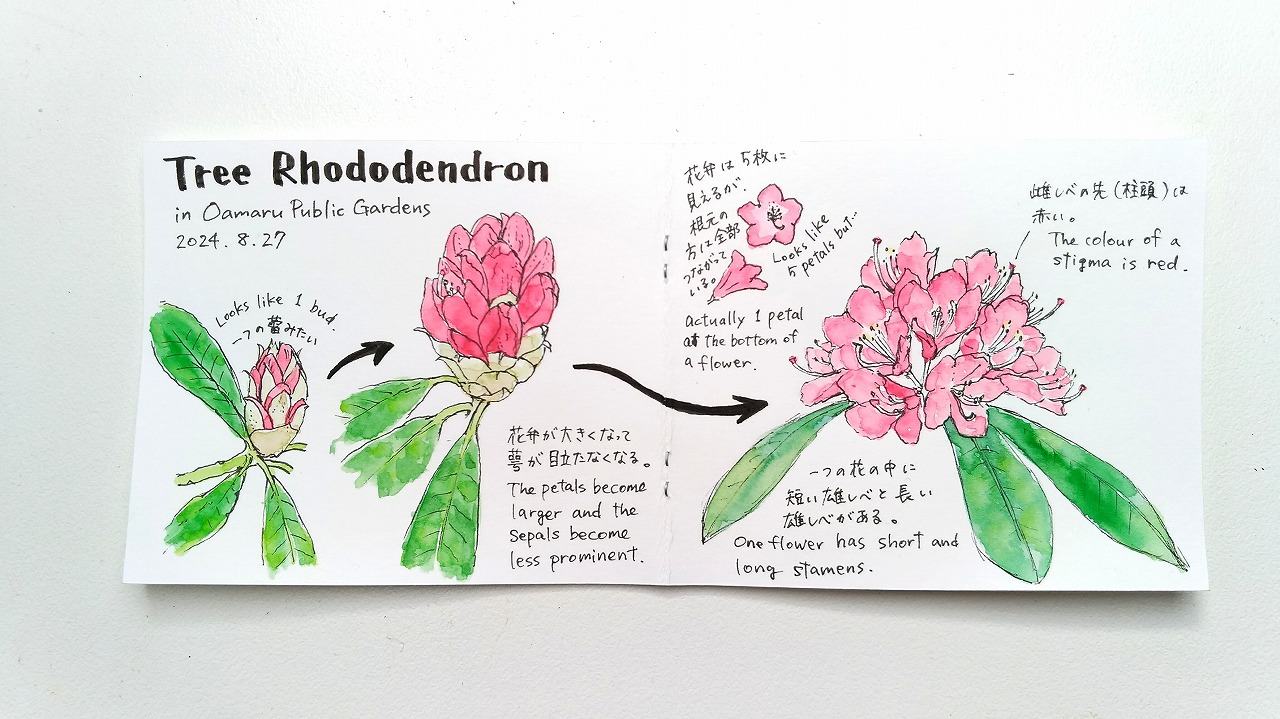 Tree Rhododendron
in Oamaru Public Gardens
2024.8.27
Looks like 1 bud.
一つの蕾みたい
花弁が大きくなって
萼が目立たなくなる。
The petals become
larger and the
sepals become
less prominent.
花弁は5枚に
見えるが、
根元の
方は全部
つながって
いる。
Looks like
5 petals but..
Actually 1 petal
at the bottom of
a flower.
雌しべの先(柱頭)は
赤い。
The colour of a
stigma is red.
一つの花の中に
短い雄しべと長い
雄しべがある。
One flower has short and
long stamens.